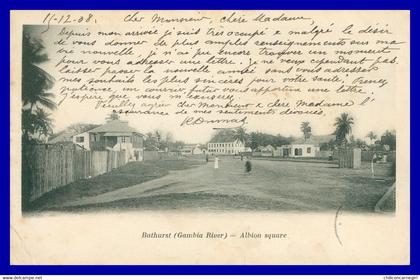 11-12-08. Cher Monsieur, chère Madame,
Depuis mon arrivée je suis très occupé & malgré le désir
de vous donner de plus amples renseignements sur ma
vie nouvelle, je n'ai pu encore trouver un moment
pour vous adresser une lettre. Je ne veux cependant pas
laisser passer la nouvelle année sans vous adresser
mes souhaits les plus sincères pour votre famille. Prenez
patience, un courrier futur vous apportera une lettre.
J'espère que vous m'excuserez
Veuillez agréer cher Monsieur & chère Madame l'
assurance de mes sentiments dévoués
Bathurst (Gambia River) — Albion square